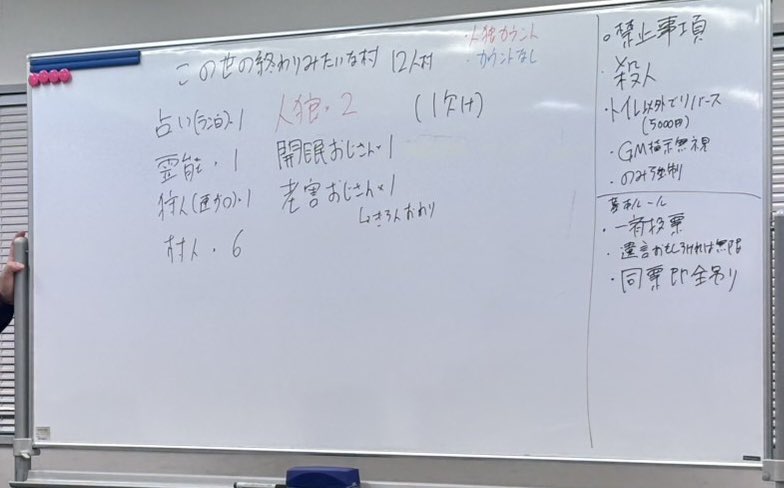 この世の終わりみたいな村 12人村
・人狼カウント
・カウントなし
占い(ラン白)・1
霊能・1
狩人(連ガ○)・1
村人・6
人狼・2
(1欠け)
開眠おじさん×1
老害おじさん×1
↳きろんおわり
○禁止事項
・殺人
・トイレ以外でリバース
(5000円)
・GM指示無視
・のみ強制
基本ルール
・一斉投票
・遺言おもしろければ無限
・同票即全吊り